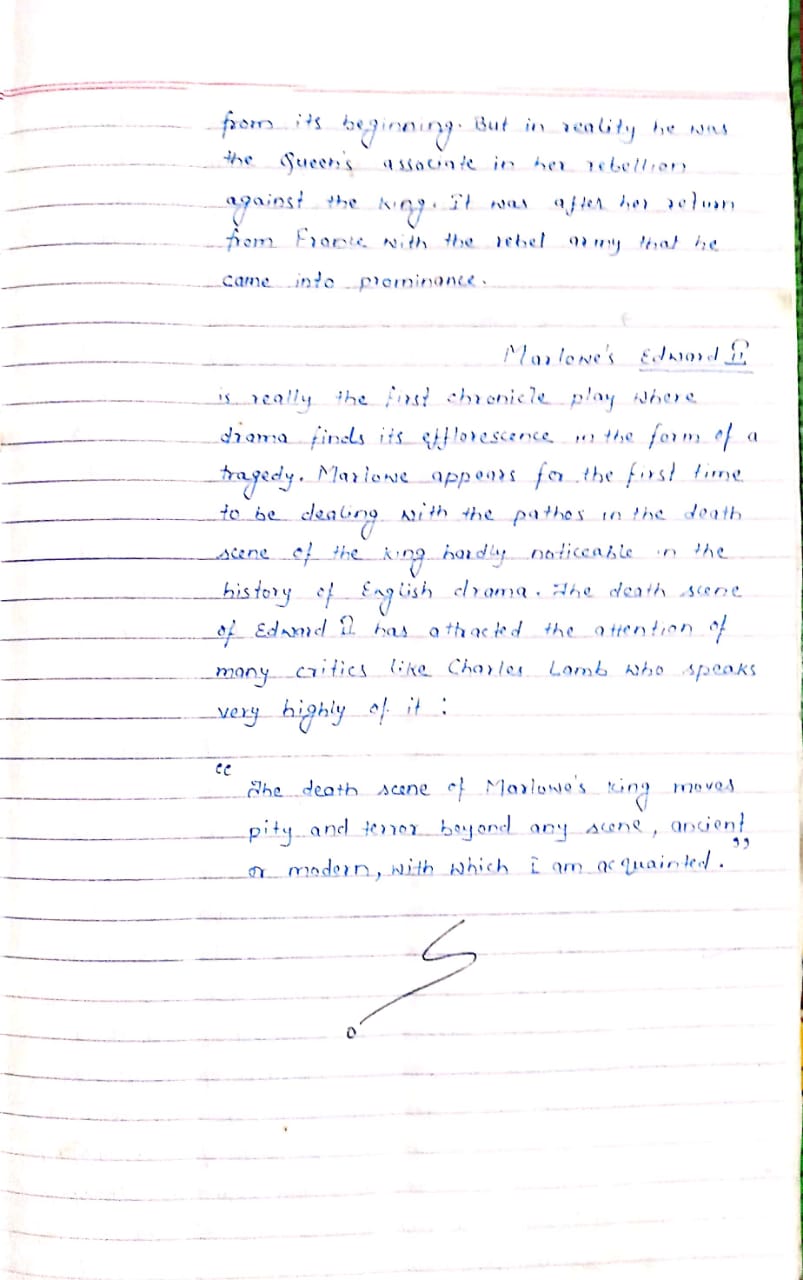 from its beginning. But in reality he was
the Queen's associate in her rebellion
against the King. It was after her return
from France with the rebel army that he
came into prominance.
Marlowe's Edward II
is really the first chronicle play where
drama finds its efflorescence in the form of a
tragedy. Marlowe appears for the first time
to be dealing with the pathos in the death
scene of the king hardly noticeable in the
history of English drama. The death scene
of Edward II has attracted the attention of
many critics like Charles Lamb who speaks
very highly of it :
“
The death scene of Marlowe's king moves
pity and terror beyond any scene, ancient
or modern, with which I am acquainted.”